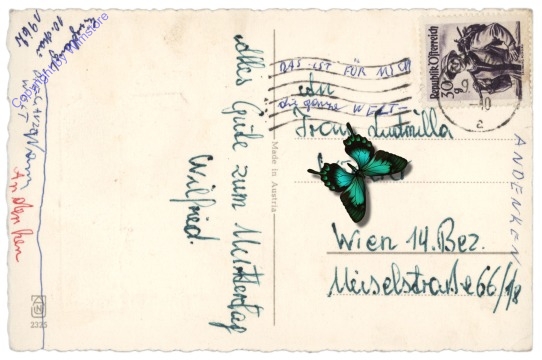 Alles Gute zum Muttertag
Wilfried.
Made in Austria
DAS IST FÜR MICH
die ganze WELT-
An
Frau Ludmilla
Wien 14. Bez.
Meiselstraße 66/1/8
ANDENKEN
Republik Österreich
30 g
1968
Andenken
2325